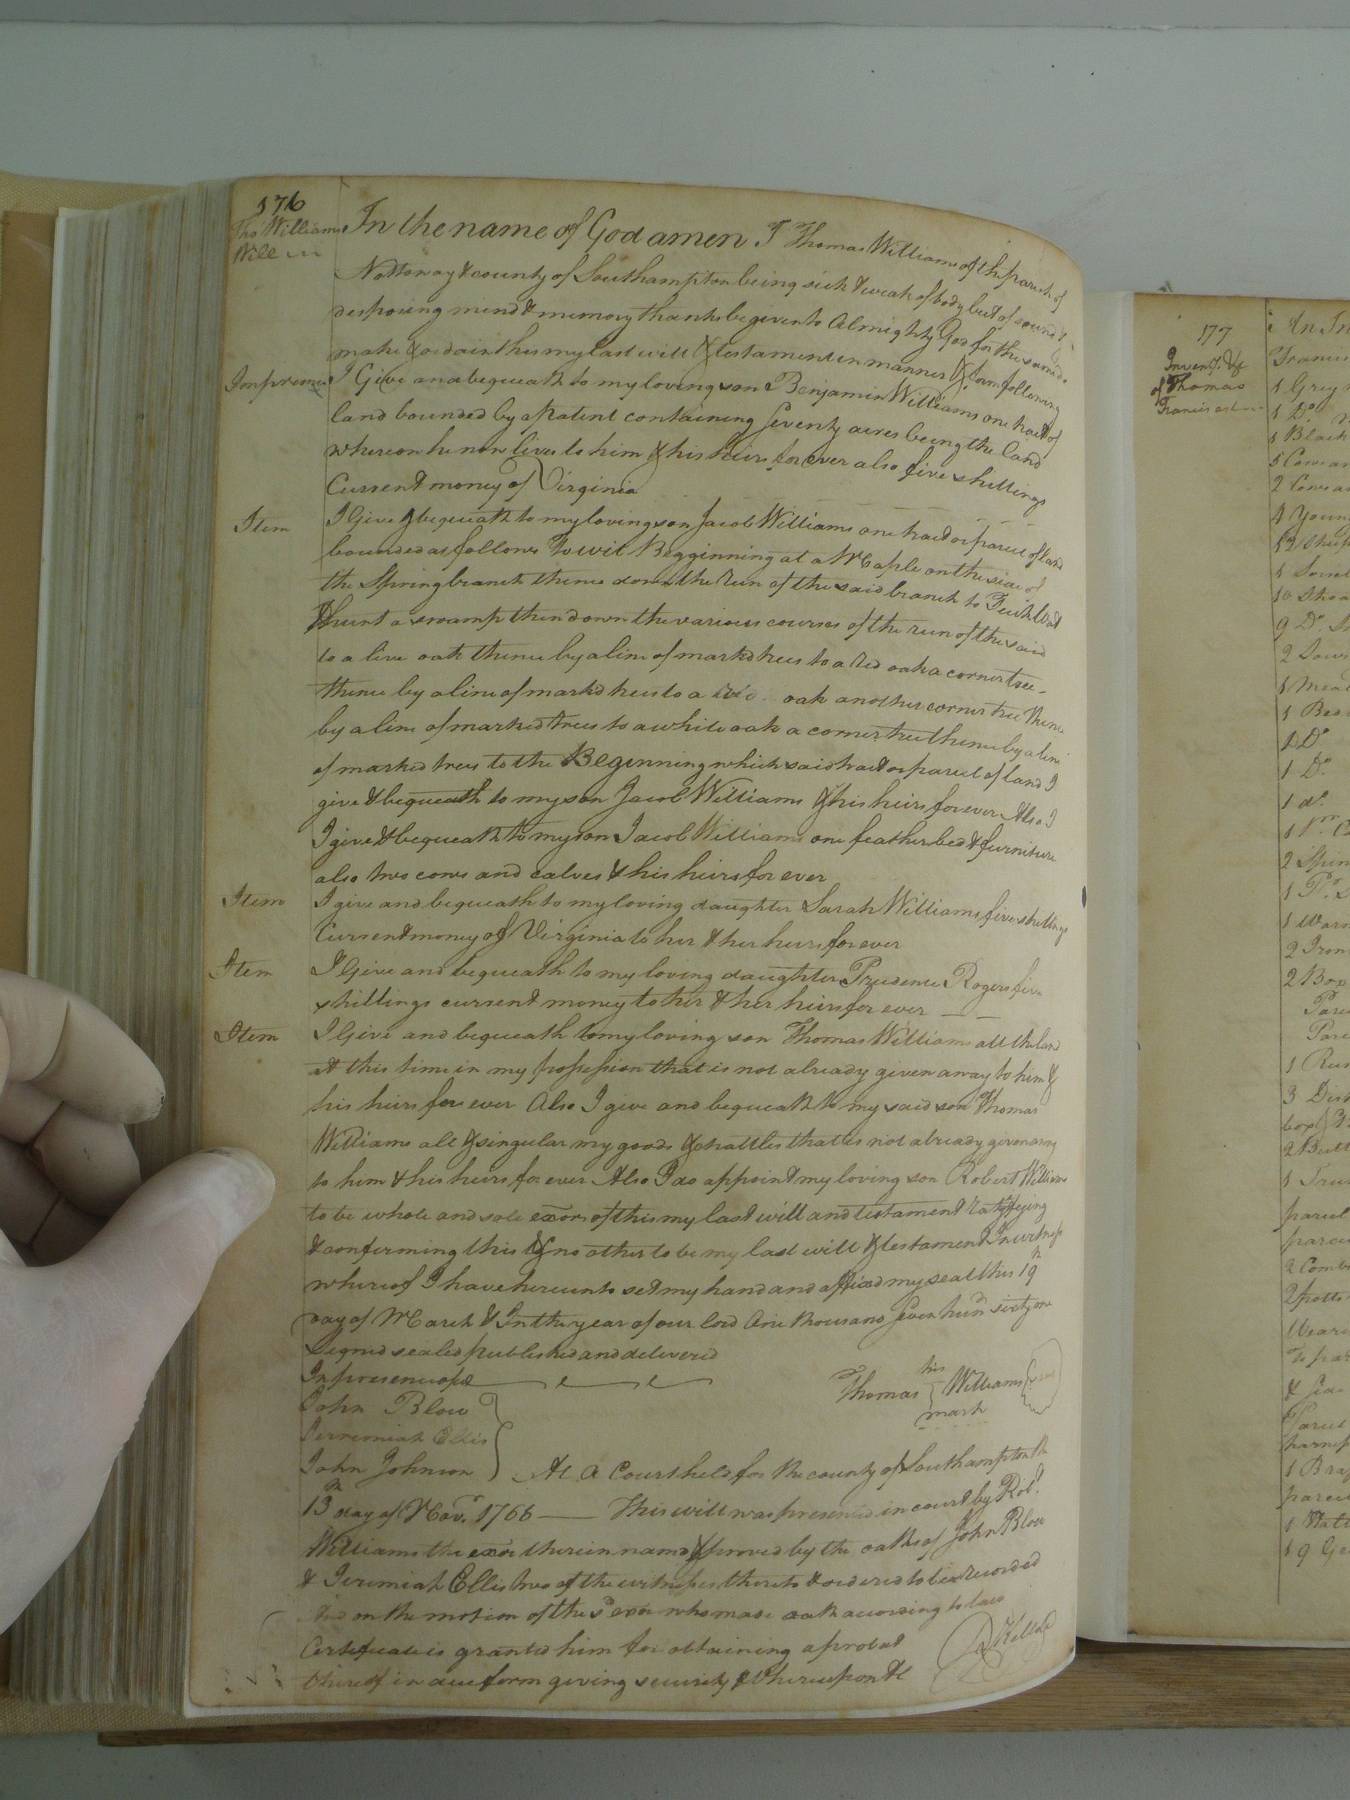 176
Tho Williams
Will
In the name of God amen I Thomas Williams of the parish of
Nottoway & county of Southampton being sick & weak of body but of sound &
desposing mind & memory thanks be given to Almighty God for the same do
make & ordain this my last will & testament in manner & form following
Impremis I Give and bequeath to my loving son Benjamin Williams one tract of
land bounded by a Patent containing Seventy acres being the land
whereon he now lives to him & his heirs for ever also five shillings
Current money of Virginia
Item I Give & bequeath to my loving son Jacob Williams one tract or parcel of land
bounded as follows To wit Begginning at a Maple on the side of
the Spring branch thence down the run of the said branch to
a swamp then down the various courses of the run of the said
to a live oak thence by a line of markd trees to a red oak a corner tree
thence by a line of markd trees to a oak another corner tree thence
by a line of marked trees to a white oak a corner tree thence by a line
of marked trees to the Beginning which said tract or parcel of land I
give & bequeath to my son Jacob Williams & his heirs for ever Also I
I give & bequeath to my son Jacob Williams one feather bed & furniture
also two cows and calves & his heirs for ever
Item I give and bequeath to my loving daughter Sarah Williams five shillings
Current money of Virginia to her & her heirs for ever
Item I Give and bequeath to my loving daughter Prudence Rogers five
shillings current money to her & her heirs for ever
Item I Give and bequeath to my loving son Thomas Williams all the land
at this time in my possession that is not already given away to him &
his heirs for ever Also I give and bequeath to my said son Thomas
Williams all & singular my goods & chattles that is not already given away
to him & his heirs for ever Also I do appoint my loving son Robert Williams
to be whole and sole exors of this my last will and testament ratifying
& confirming this & no other to be my last will & testament In witness
whereof I have hereunto set my hand and affixed my seal this 19th
day of March & In the year of our lord One thousand Seven hund sixty one
Signed sealed published and delivered
In presence of
his
Thomas Williams
mark
John Blow
Jerremiah Ellis
John Johnson
At a Court held for the county of Southampton the
13th day of Novr. 1766 This will was presented in court by Robt.
Williams the exor therein named & proved by the oaths of John Blow
& Jeremiah Ellis two of the witnesses thereto & ordered to be recorded
And on the motion of the sd exor who made oath according to law
Certificate is granted him for obtaining a probat
thereof in due form giving security & thereupon &c
177
Inventy. &c
of Thomas
Francis
An In
Francis
1 Grey
1 Do
1 Black
5 Cows an
2 Cows a
4 Young
1 Do
1 Do.
1 do.
2 Spin
1 warm
2 Iron
2 Box
3 Dish
parcel
parcel
2 Comb
2 potts
Wear
& Sea
Parcel
parcel